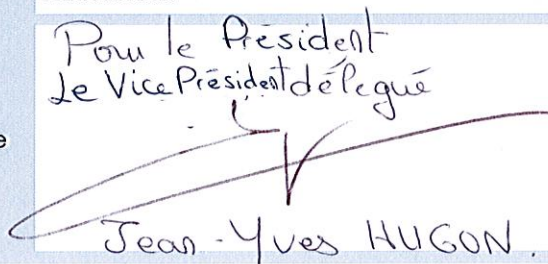 Pour le Président
Le Vice Président délégué
e
Jean-Yves HUGON.